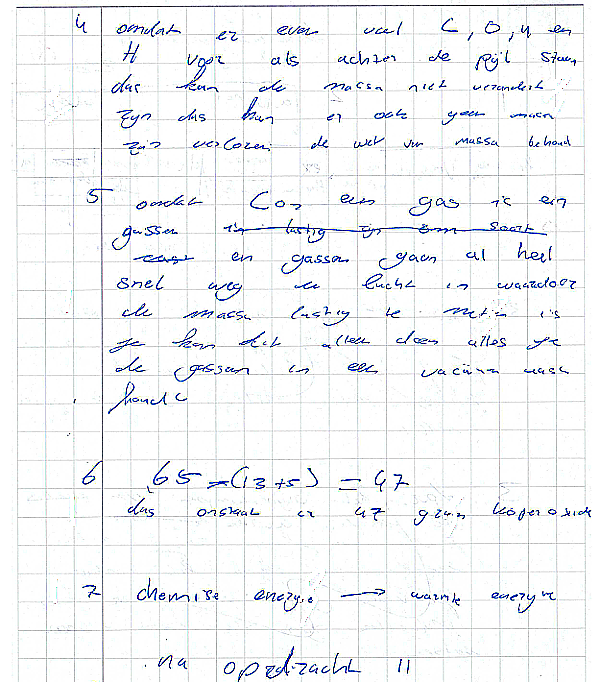 4 omdat er even veel C, O, u en
H voor als achter de pijl staan
dus kan de massa niet veranderd
zijn dus kan er ook geen massa
zijn verloren de wet van massa behoud
5 omdat Co2 een gas is en
gassen is lastig in een soort
en gassen gaan al heel
snel weg de lucht in waardoor
de massa lastig te meten is
je kan dit alleen doen alles je
de gassen in een vacuüm
houdt
6 65 - (13 + 5) = 47
dus onstaat er 47 gram koperoxide
7 chemise energie → warmte energie
na opzdracht 11